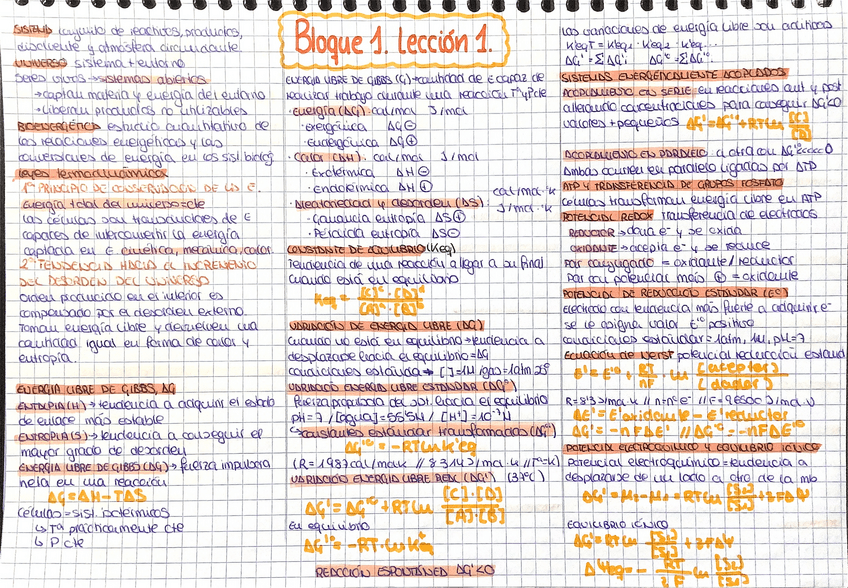 Bloque 1. Lección 1.
SISTEMA conjunto de reactivos, productos,
disolvente y atmósfera circundante.
UNIVERSO sistema + entorno
Seres vivos → sistemas abiertos
→ captan materia y energía del entorno
→ liberan productos no utilizables
BIOENERGÉTICA estudio cuantitativo de
las reacciones energéticas y las
conversiones de energía en los sist. biológ.
Leyes termodinámicas
1º PRINCIPIO DE CONSERVACIÓN DE LA E.
Energía total del universo = cte
Las células son transductores de E
capaces de interconvertir la energía
captada en E cinética, mecánica, calor.
2º TENDENCIA HACIA EL INCREMENTO
DEL DESORDEN DEL UNIVERSO
Orden producido en el interior es
compensado por el desorden externo.
Toman energía libre y devuelven una
cantidad igual en forma de calor y
entropía.
ENERGÍA LIBRE DE GIBBS, ΔG
ENTALPIA (H) → tendencia a adquirir el estado
de enlace más estable
ENTROPIA (S) → tendencia a conseguir el
mayor grado de desorden
ENERGÍA LIBRE DE GIBBS (ΔG) → fuerza impulsora
neta en una reacción
ΔG = ΔH - TΔS
Células = sist. isotérmicos
↳ Tª prácticamente cte
↳ P cte
ENERGÍA LIBRE DE GIBBS (G) → cantidad de E capaz de
realizar trabajo durante una reacción Tª y P cte
· Energía (ΔG). cal/mol J/mol
- exergónica ΔG ⊖
- endergónica ΔG ⊕
· Calor (ΔH). cal/mol J/mol
- Exotérmica ΔH ⊖
- Endotérmica ΔH ⊕
· Aleatoriedad y desorden (ΔS). cal/mol·K J/mol·K
- Ganancia entropía ΔS ⊕
- Pérdida entropía ΔS ⊖
CONSTANTE DE EQUILIBRIO (Keq)
Tendencia de una reacción a llegar a su final
cuando está en equilibrio
Keq = [C]ᶜ · [D]ᵈ / [A]ᵃ · [B]ᵇ
VARIACIÓN DE ENERGÍA LIBRE (ΔG)
Cuando no está en equilibrio → tendencia a
desplazarse hacia el equilibrio = ΔG
Condiciones estándar → [] = 1M / gas = 1atm 25º
VARIACIÓN ENERGÍA LIBRE ESTÁNDAR (ΔGº)
Fuerza propulsora del sist. hacia el equilibrio
pH = 7 / [agua] = 55'5M / [H⁺] = 10⁻⁷M
↳ constantes estándar transformadas (ΔG'º)
ΔG'º = -RT Ln K'eq
(R = 1'987 cal/mol·K // 8'314 J/mol·K // Tª = K)
VARIACIÓN ENERGÍA LIBRE REAL (ΔG') (37ºC)
ΔG' = ΔG'º + RT Ln [C]·[D] / [A]·[B]
En equilibrio
ΔG'º = -RT · Ln K'eq
REACCIÓN ESPONTÁNEA ΔG' < 0
Las variaciones de energía libre son aditivas
K'eqT = K'eq₁ · K'eq₂ · K'eq...
ΔG' = ΣΔG' ΔG'º = ΣΔG'º
SISTEMAS ENERGÉTICAMENTE ACOPLADOS
ACOPLAMIENTO EN SERIE en reacciones ant y post
alterando concentraciones para conseguir ΔG' < 0
valores + pequeños ΔG' = ΔG'º + RT Ln [C] / [B]
ACOPLAMIENTO EN PARALELO a otra con ΔG'º <<<< 0
Ambas ocurren en paralelo ligadas por ATP
ATP Y TRANSFERENCIA DE GRUPOS FOSFATO
Células transforman energía libre en ATP
POTENCIAL REDOX Transferencia de electrones
REDUCTOR → dona e⁻ y se oxida
OXIDANTE → acepta e⁻ y se reduce
Par conjugado = oxidante / reductor
Par con potencial más ⊕ = oxidante
POTENCIAL DE REDUCCIÓN ESTÁNDAR (Eº)
electrodo con tendencia más fuerte a adquirir e⁻
se le asigna valor E'º positivo
condiciones estándar = 1atm, 1M, pH = 7
Ecuación de Nerst potencial reducción estánd
E' = E'º + RT / nF · Ln [aceptor] / [dador]
R = 8'3 J/mol·K // n = nº e⁻ // F = 96500 J/mol·V
ΔE' = E' oxidante - E' reductor
ΔG' = -nFΔE' // ΔG'º = -nFΔE'º
POTENCIAL ELECTROQUÍMICO Y EQUILIBRIO IÓNICO
Potencial electroquímico = tendencia a
desplazarse de un lado a otro de la mb
EQUILIBRIO IÓNICO